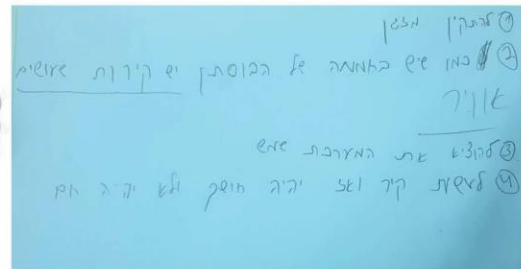 ① להתקין מזגן
② כמו שיש באממה של הבוסתן יש קירות שעושים
אוויר
③ להוציא את המערכת שמש
④ לעשות קיר ואז יהיה חושך ולא יהיה חם